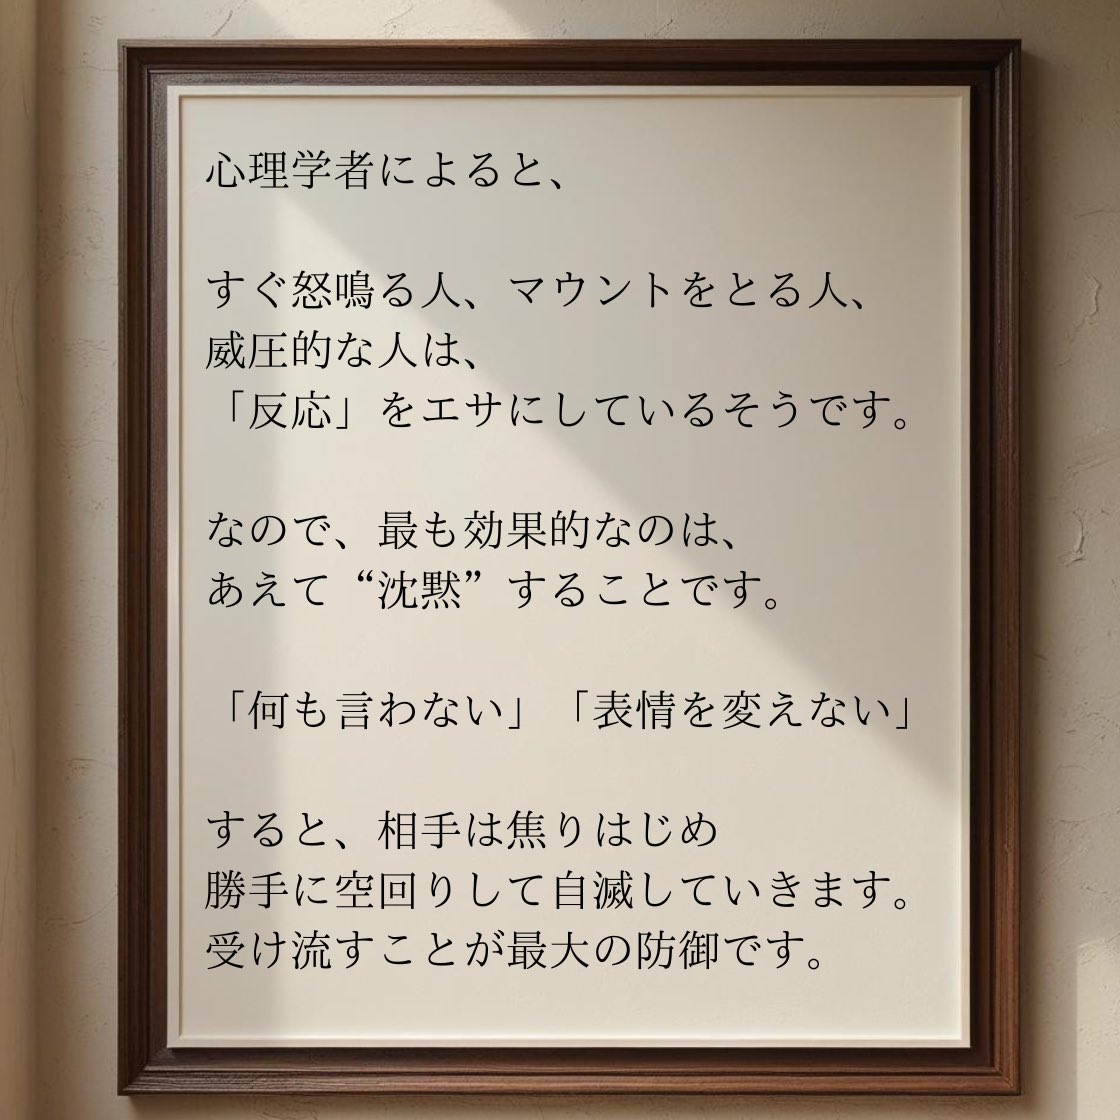 心理学者によると、
すぐ怒鳴る人、マウントをとる人、
威圧的な人は、
「反応」をエサにしているそうです。
なので、最も効果的なのは、
あえて“沈黙”することです。
「何も言わない」「表情を変えない」
すると、相手は焦りはじめ
勝手に空回りして自滅していきます。
受け流すことが最大の防御です。